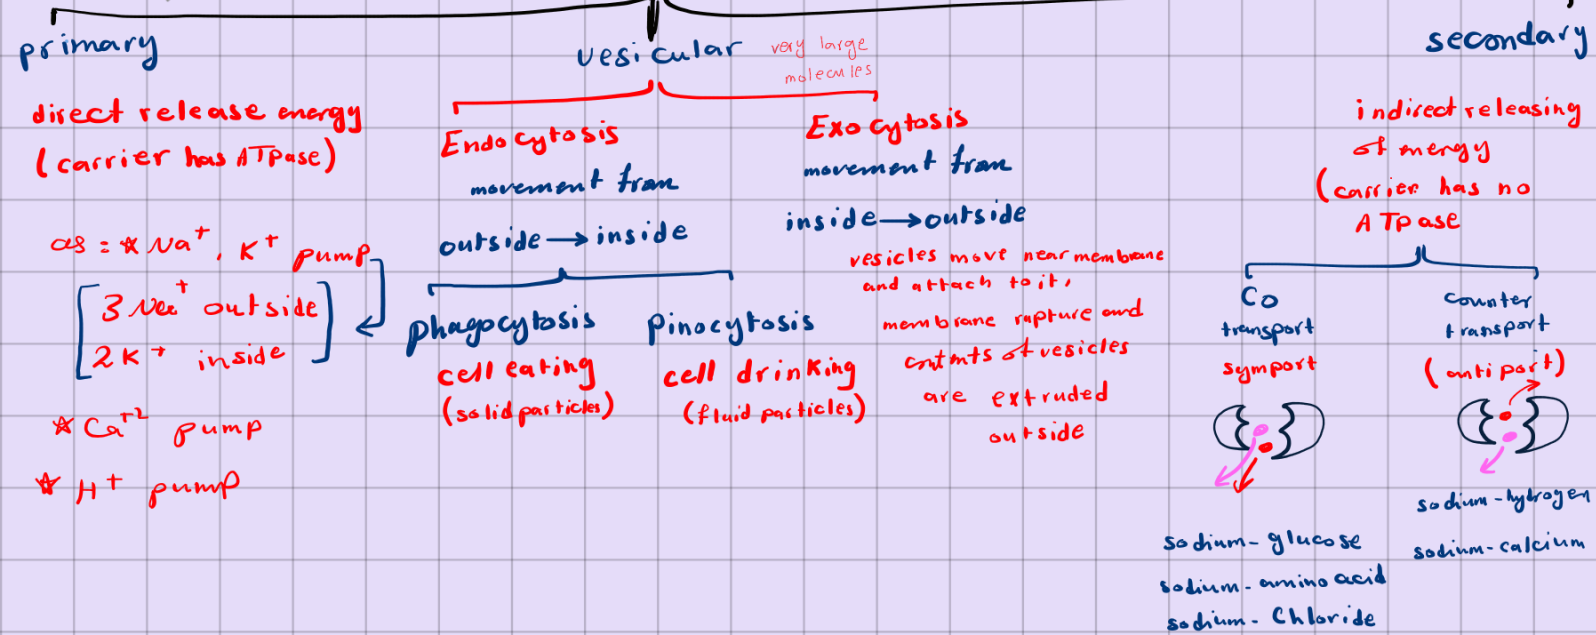 primary
direct release energy
(carrier has ATPase)
as : * Na+, K+ pump
3 Na+ outside
2 K+ inside
* Ca+2 pump
* H+ pump
vesicular
very large
molecules
Endocytosis
movement from
outside → inside
phagocytosis
cell eating
(solid particles)
pinocytosis
cell drinking
(fluid particles)
Exocytosis
movement from
inside → outside
vesicles move near membrane
and attach to it,
membrane rapture and
contents of vesicles
are extruded
outside
secondary
indirect releasing
of energy
(carrier has no
ATPase
Co
transport
symport
sodium-glucose
sodium-amino acid
sodium-Chloride
counter
transport
(antiport)
sodium-hydrogen
sodium-calcium